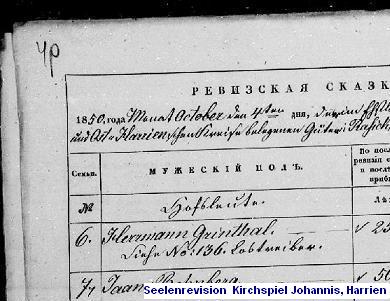 РЕВИЗСКАЯ СКАЗК
1850. года Monat October den 4ten дня,
und Ost-Harrien'schen Kreise belegenen Güter:
Семьи. МУЖЕСКІЙ ПОЛЪ. По посл
ревизіи
и посл
приб
№ Hofsleute. Лѣ
6. Herrmann Grünthal. 25
Siehe No: 136. Lostreiber.
7. Jaan 50
Seelenrevision Kirchspiel Johannis, Harrien